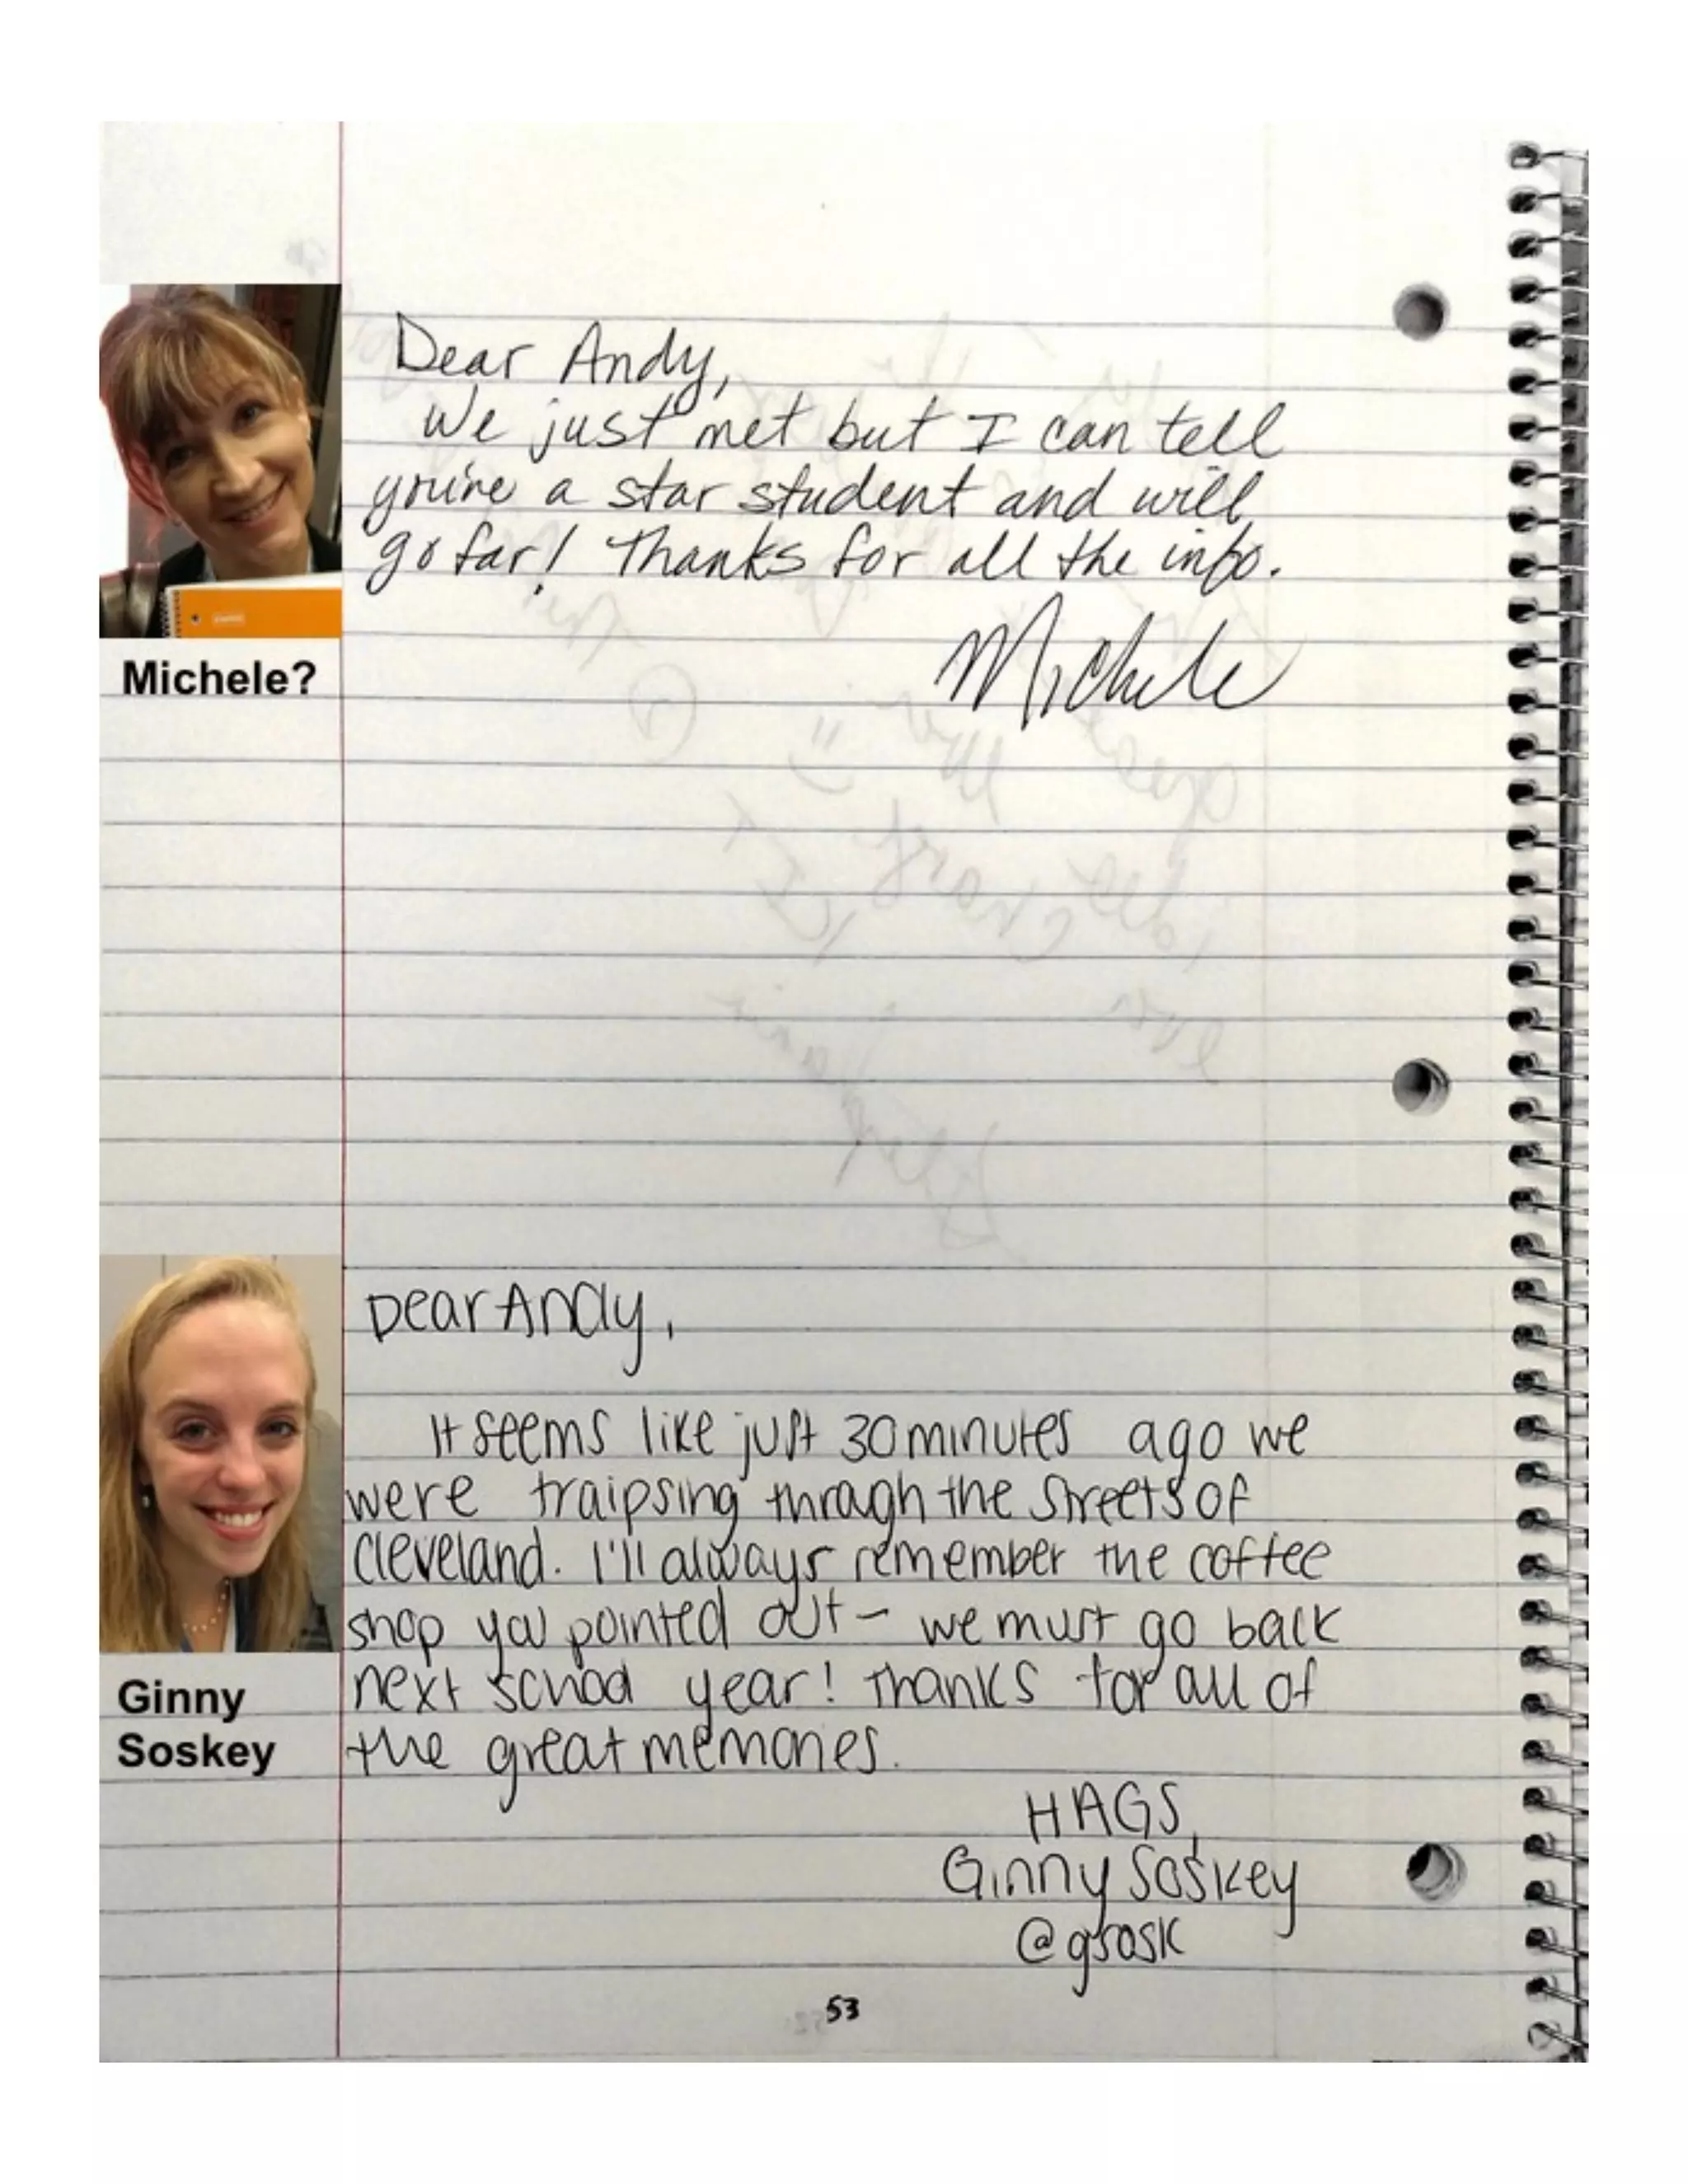 Dear Andy,
We just met but I can tell
you're a star student and will
go far! Thanks for all the info.
Michele
Michele?
Dear Andy,
It seems like just 30 minutes ago we
were traipsing through the streets of
Cleveland. I'll always remember the coffee
shop you pointed out - we must go back
next school year! Thanks for all of
the great memories.
Ginny
Soskey
HAGS,
Ginny Soskey
@gsosk
53